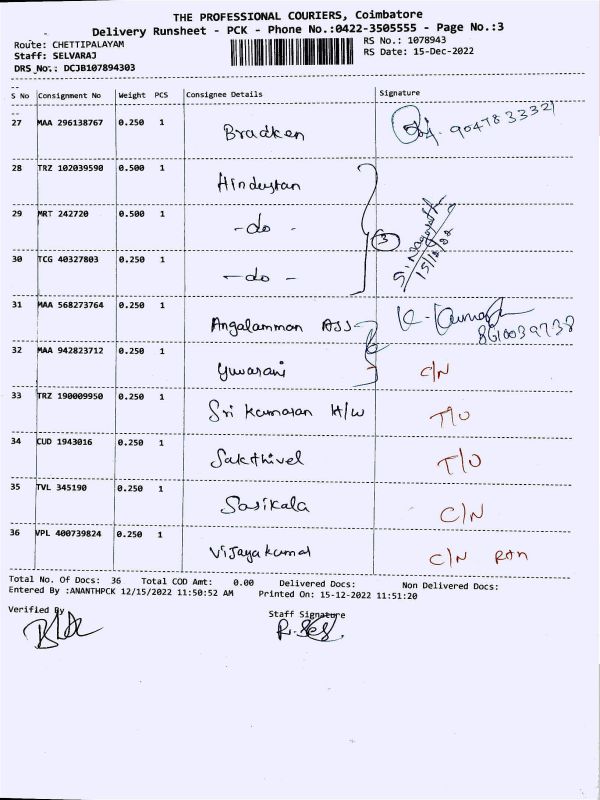 THE PROFESSIONAL COURIERS, Coimbatore
Delivery Runsheet - PCK - Phone No.:0422-3505555 - Page No.:3
Route: CHETTIPALAYAM
RS No.: 1078943
Staff: SELVARAJ
RS Date: 15-Dec-2022
DRS No.: DCJB107894303
S No Consignment No Weight PCS Consignee Details Signature
27 MAA 296138767 0.250 1 Bradken 9047833321
28 TRZ 102039590 0.500 1 Hindustan
29 MRT 242720 0.500 1 -do - 3
15/12/22
30 TCG 40327803 0.250 1 -do -
31 MAA 568273764 0.250 1 Angalamman ASS
8610039738
32 MAA 942823712 0.250 1 Yuvarani C/N
33 TRZ 190009950 0.250 1 Sri Kumaran H/W T/O
34 CUD 1943016 0.250 1 Sakthivel T/O
35 TVL 345190 0.250 1 Sasikala C/N
36 VPL 400739824 0.250 1 Vijayakumar C/N
Total No. Of Docs: 36 Total COD Amt: 0.00 Delivered Docs: Non Delivered Docs:
Entered By :ANANTHPCK 12/15/2022 11:50:52 AM Printed On: 15-12-2022 11:51:20
Verified By
Staff Signature